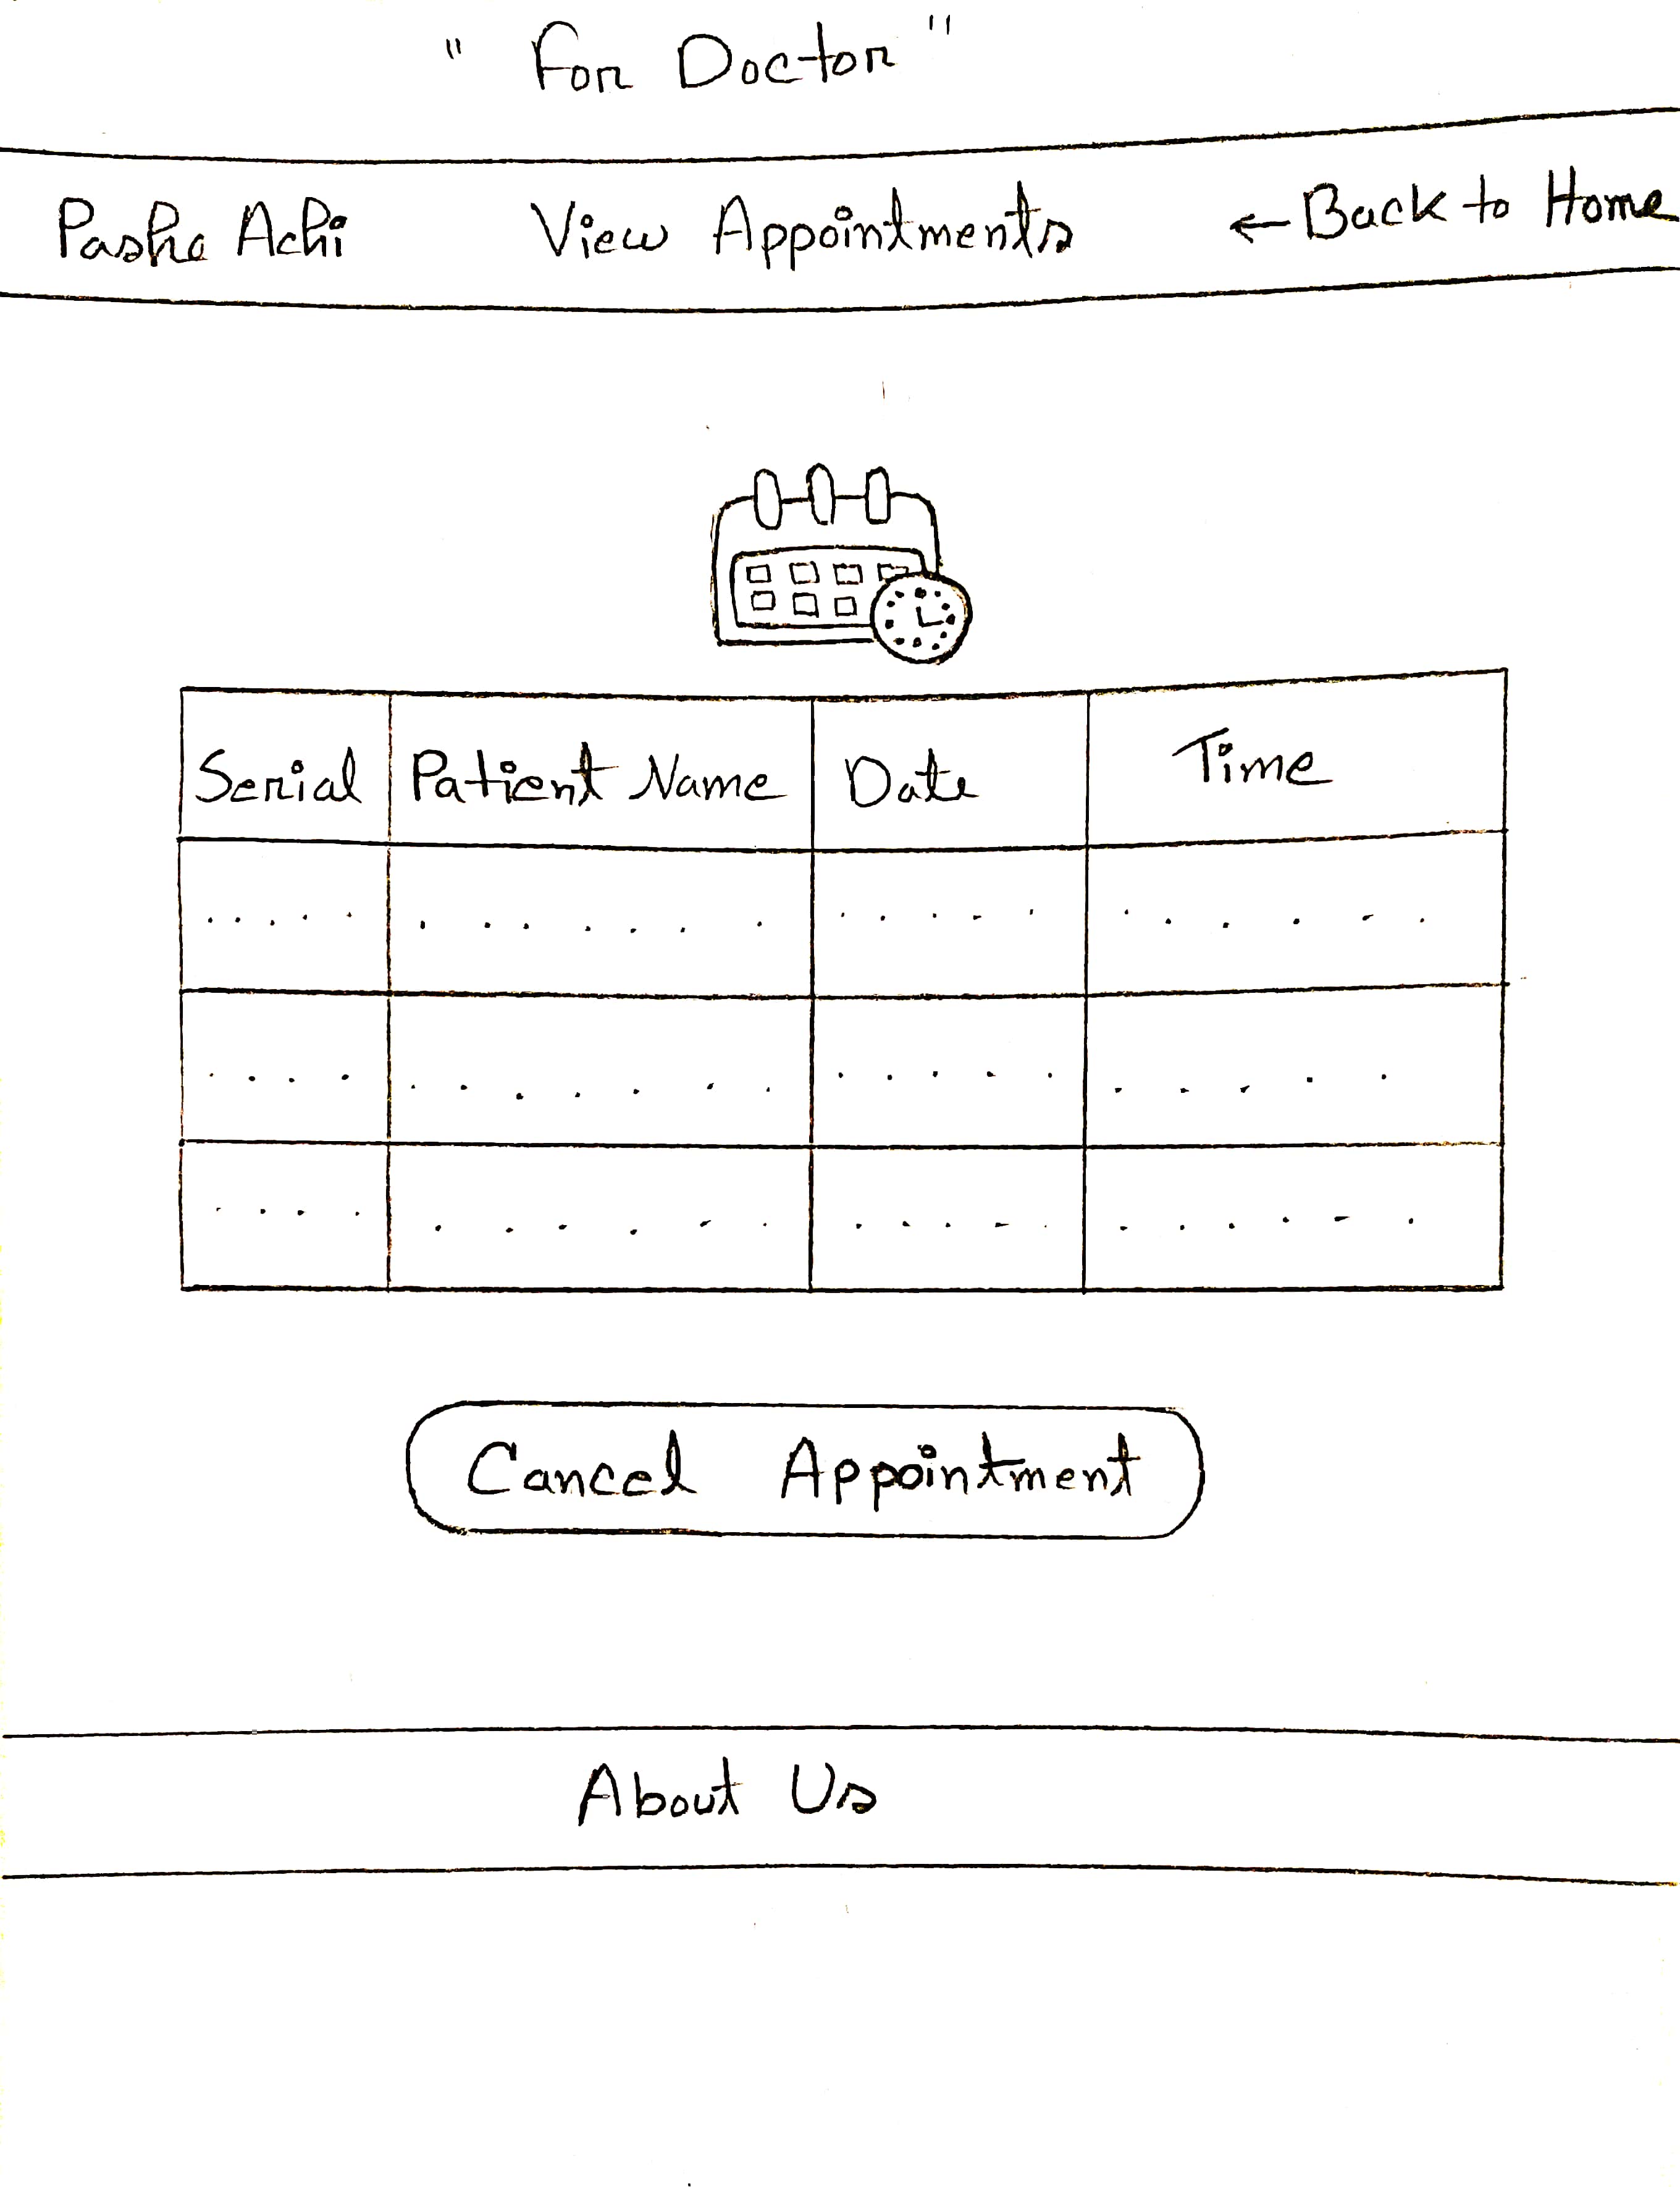 " For Doctor "
Pashe Achi View Appointments ← Back to Home
Serial Patient Name Date Time
..... ....... ..... ......
.... ....... ..... .....
.... ...... ..... ......
Cancel Appointment
About Us